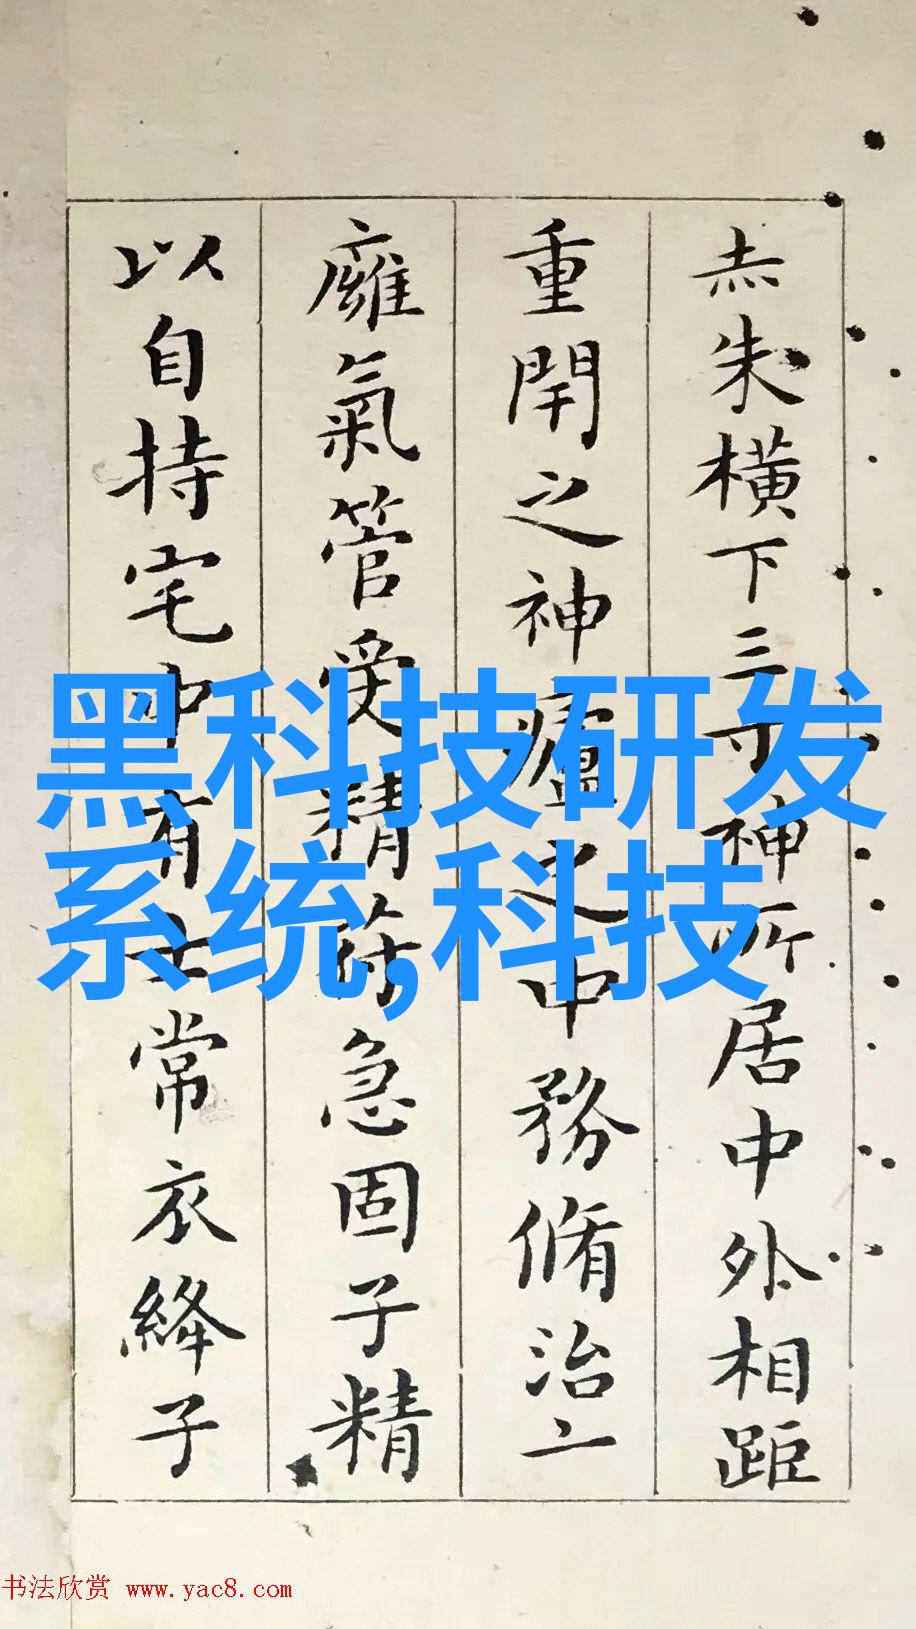 赤朱橫下三寸神所居中外相距
重閇之神廬之中務脩治二
廱氣管受精苻急固子精
以自持宅中有士常衣絳子
黑科技研发
系统,科技
书法欣赏 www.yac8.com